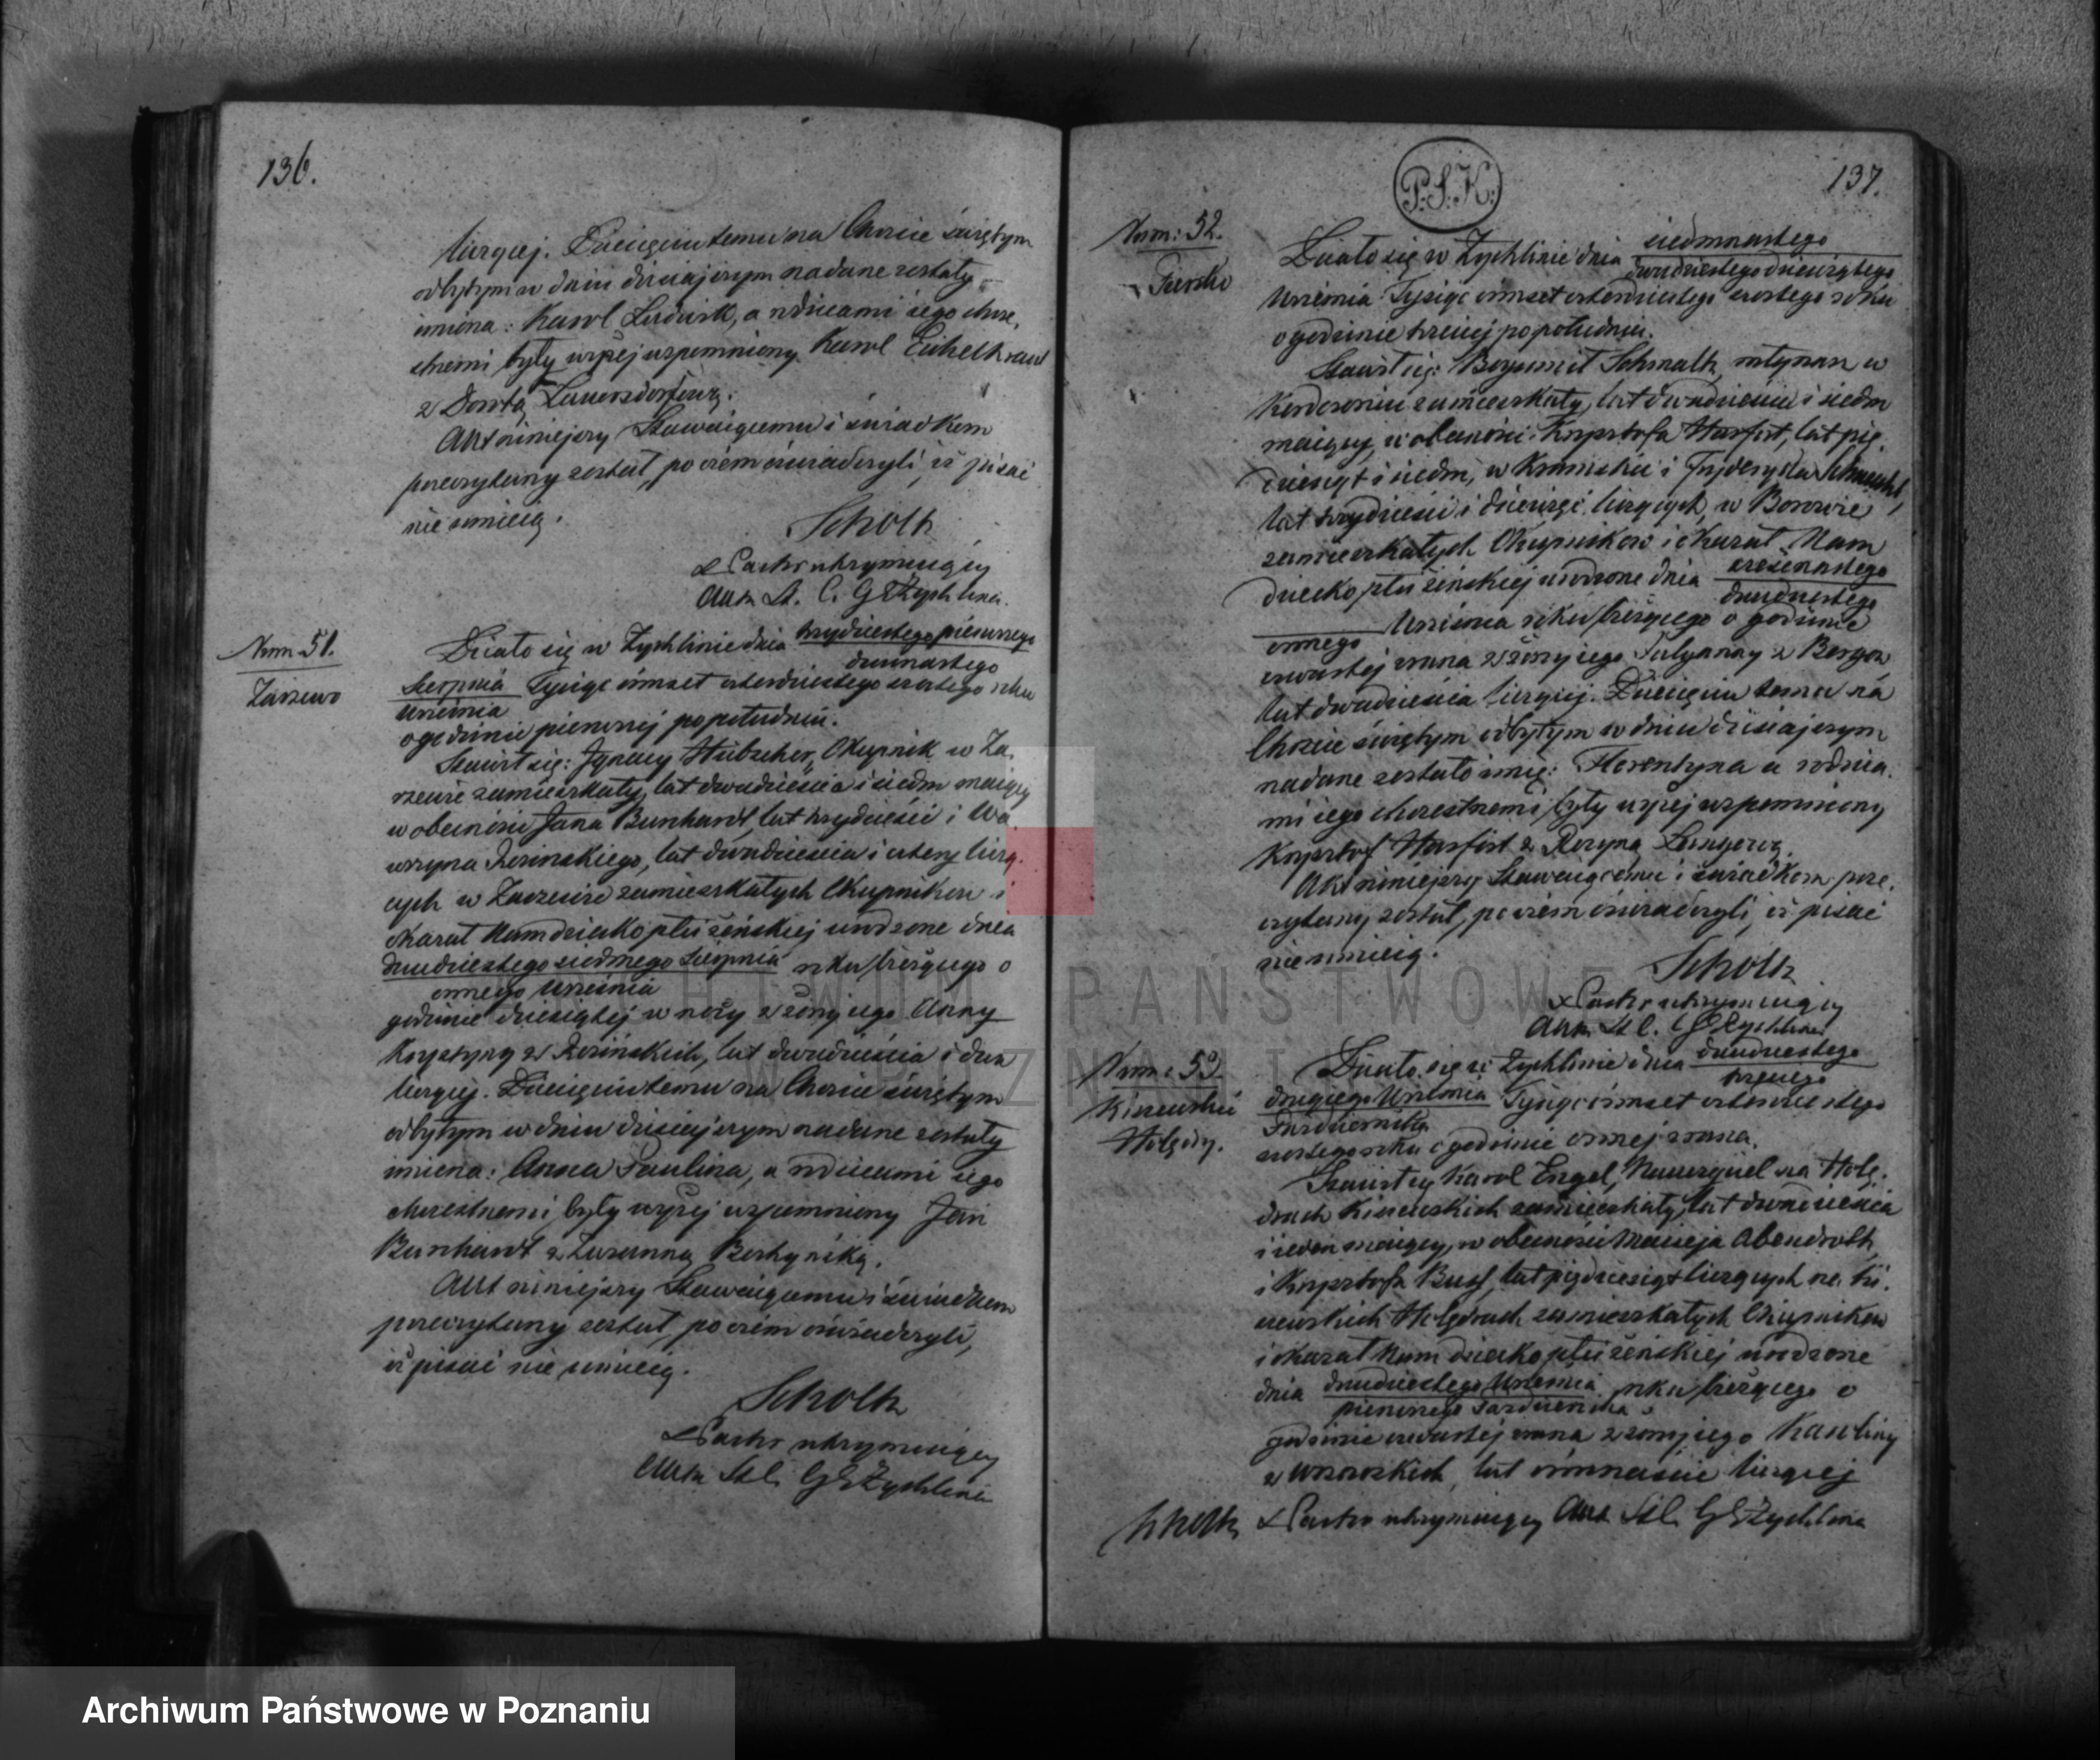 136.
liczącej. Dziecięciu temu na Chrzcie świętym
odbytym w dniu dzisiejszym nadane zostały
imiona: Karol Ludwik, a rodzicami jego chrze,
stnemi były wyżej wspomniony Karol
z Dorotą
Akt niniejszy Stawaiącemu i świadkom
przeczytany został, poczem oświadczyli, iż pisać
nie umieią.
Scholtz
Pastor utrzymuiący
Akta St. C. G E Zychlina.
Num. 51.
Zarzewo
Działo się w Zychlinie dnia trzydziestego pierwszego
dwunastego
Sierpnia Tysiąc ośmset czterdziestego szostego roku
Września
o godzinie pierwszej popołudniu.
Stawił się: Ignacy Hübscher, Okupnik w Za,
rzewie zamieszkały, lat dwadzieścia i siedm maiący
w obecności Jana Bunhardt, lat trzydzieści i Wa,
wrzyna Rosinskiego, lat dwadzieścia i cztery licz,
cych w Zarzewie zamieszkałych Okupnikow i
okazał Nam dziecko płci żeńskiej urodzone dnia
dwudziestego siodmego Sierpnia roku bieżącego o
osmego Września
godzinie dziesiątej w nocy z żony jego Anny
Krystyny z Rosińskich, lat dwadzieścia i dwa
liczącej. Dziecięciu temu na Chrzcie świętym
odbytym w dniu dzisiejszym nadane zostały
imiona: Anna Paulina, a rodzicami jego
chrzestnemi były wyżej wspomniony Jan
Bunhardt z Zuzanną
Akt niniejszy Stawaiącemu i świadkom
przeczytany został, poczem oświadczyli,
iż pisać nie umieią.
Scholtz
Pastor utrzymuiący
Akta St. C. G E Zychlina
P.S.K.
137.
Num: 52.
Działo się w Zychlinie dnia siedmnastego
dwudziestego dziewiątego
Września Tysiąc ośmset czterdziestego szostego roku
o godzinie trzeciej popołudniu.
Stawił się: Bogumił Schmaltz, młynarz w
zamieszkały, lat dwadzieścia i siedm
maiący, w obecności Krysztofa Harfist, lat pię,
dziesiąt i siedm, w i Fryderyka
lat trzydzieści i dziewięć liczących, w Borowie
zamieszkałych Okupnikow i okazał Nam
dziecko płci żeńskiej urodzone dnia szesnastego
dwudziestego
osmego Września roku bieżącego o godzinie
czwartej zrana z żony jego Julyanny z
lat dwadzieścia liczącej. Dziecięciu temu na
Chrzcie świętym odbytym w dniu dzisiajszym
nadane zostało imię: Florentyna a rodzica,
mi jego chrzestnemi były wyżej wspomniony
Krysztof Harfist z Rozyną
Akt niniejszy Stawaiącemu i świadkom prze,
czytany został, poczem oświadczyli, iż pisać
nie umieią.
Scholtz
Pastor utrzymuiący
Akta St. C. G E Zychlina
Num: 53.
Kiszewskie
Holędry.
Działo się w Zychlinie dnia dwudziestego
trzeciego
drugiego Września Tysiąc ośmset czterdziestego
Października
szostego roku o godzinie osmej zrana.
Stawił się Karol Engel, Nauczyciel na Holę,
drach Kiszewskich zamieszkały, lat dwadzieścia
i jeden maiący, w obecności Macieja Abendroth
i Krysztofa Buss, lat pięćdziesiąt liczących na Ki,
szewskich Holędrach zamieszkałych Okupnikow
i okazał Nam dziecko płci żeńskiej urodzone
dnia dwudziestego Września roku bieżącego o
pierwszego Października
godzinie czwartej zrana z żony jego Karoliny
z lat ośmnaście liczącej
Scholtz Pastor utrzymuiący Akta St. C. G E Zychlina
ARCHIWUM PAŃSTWOWE
W POZNANIU
Archiwum Państwowe w Poznaniu